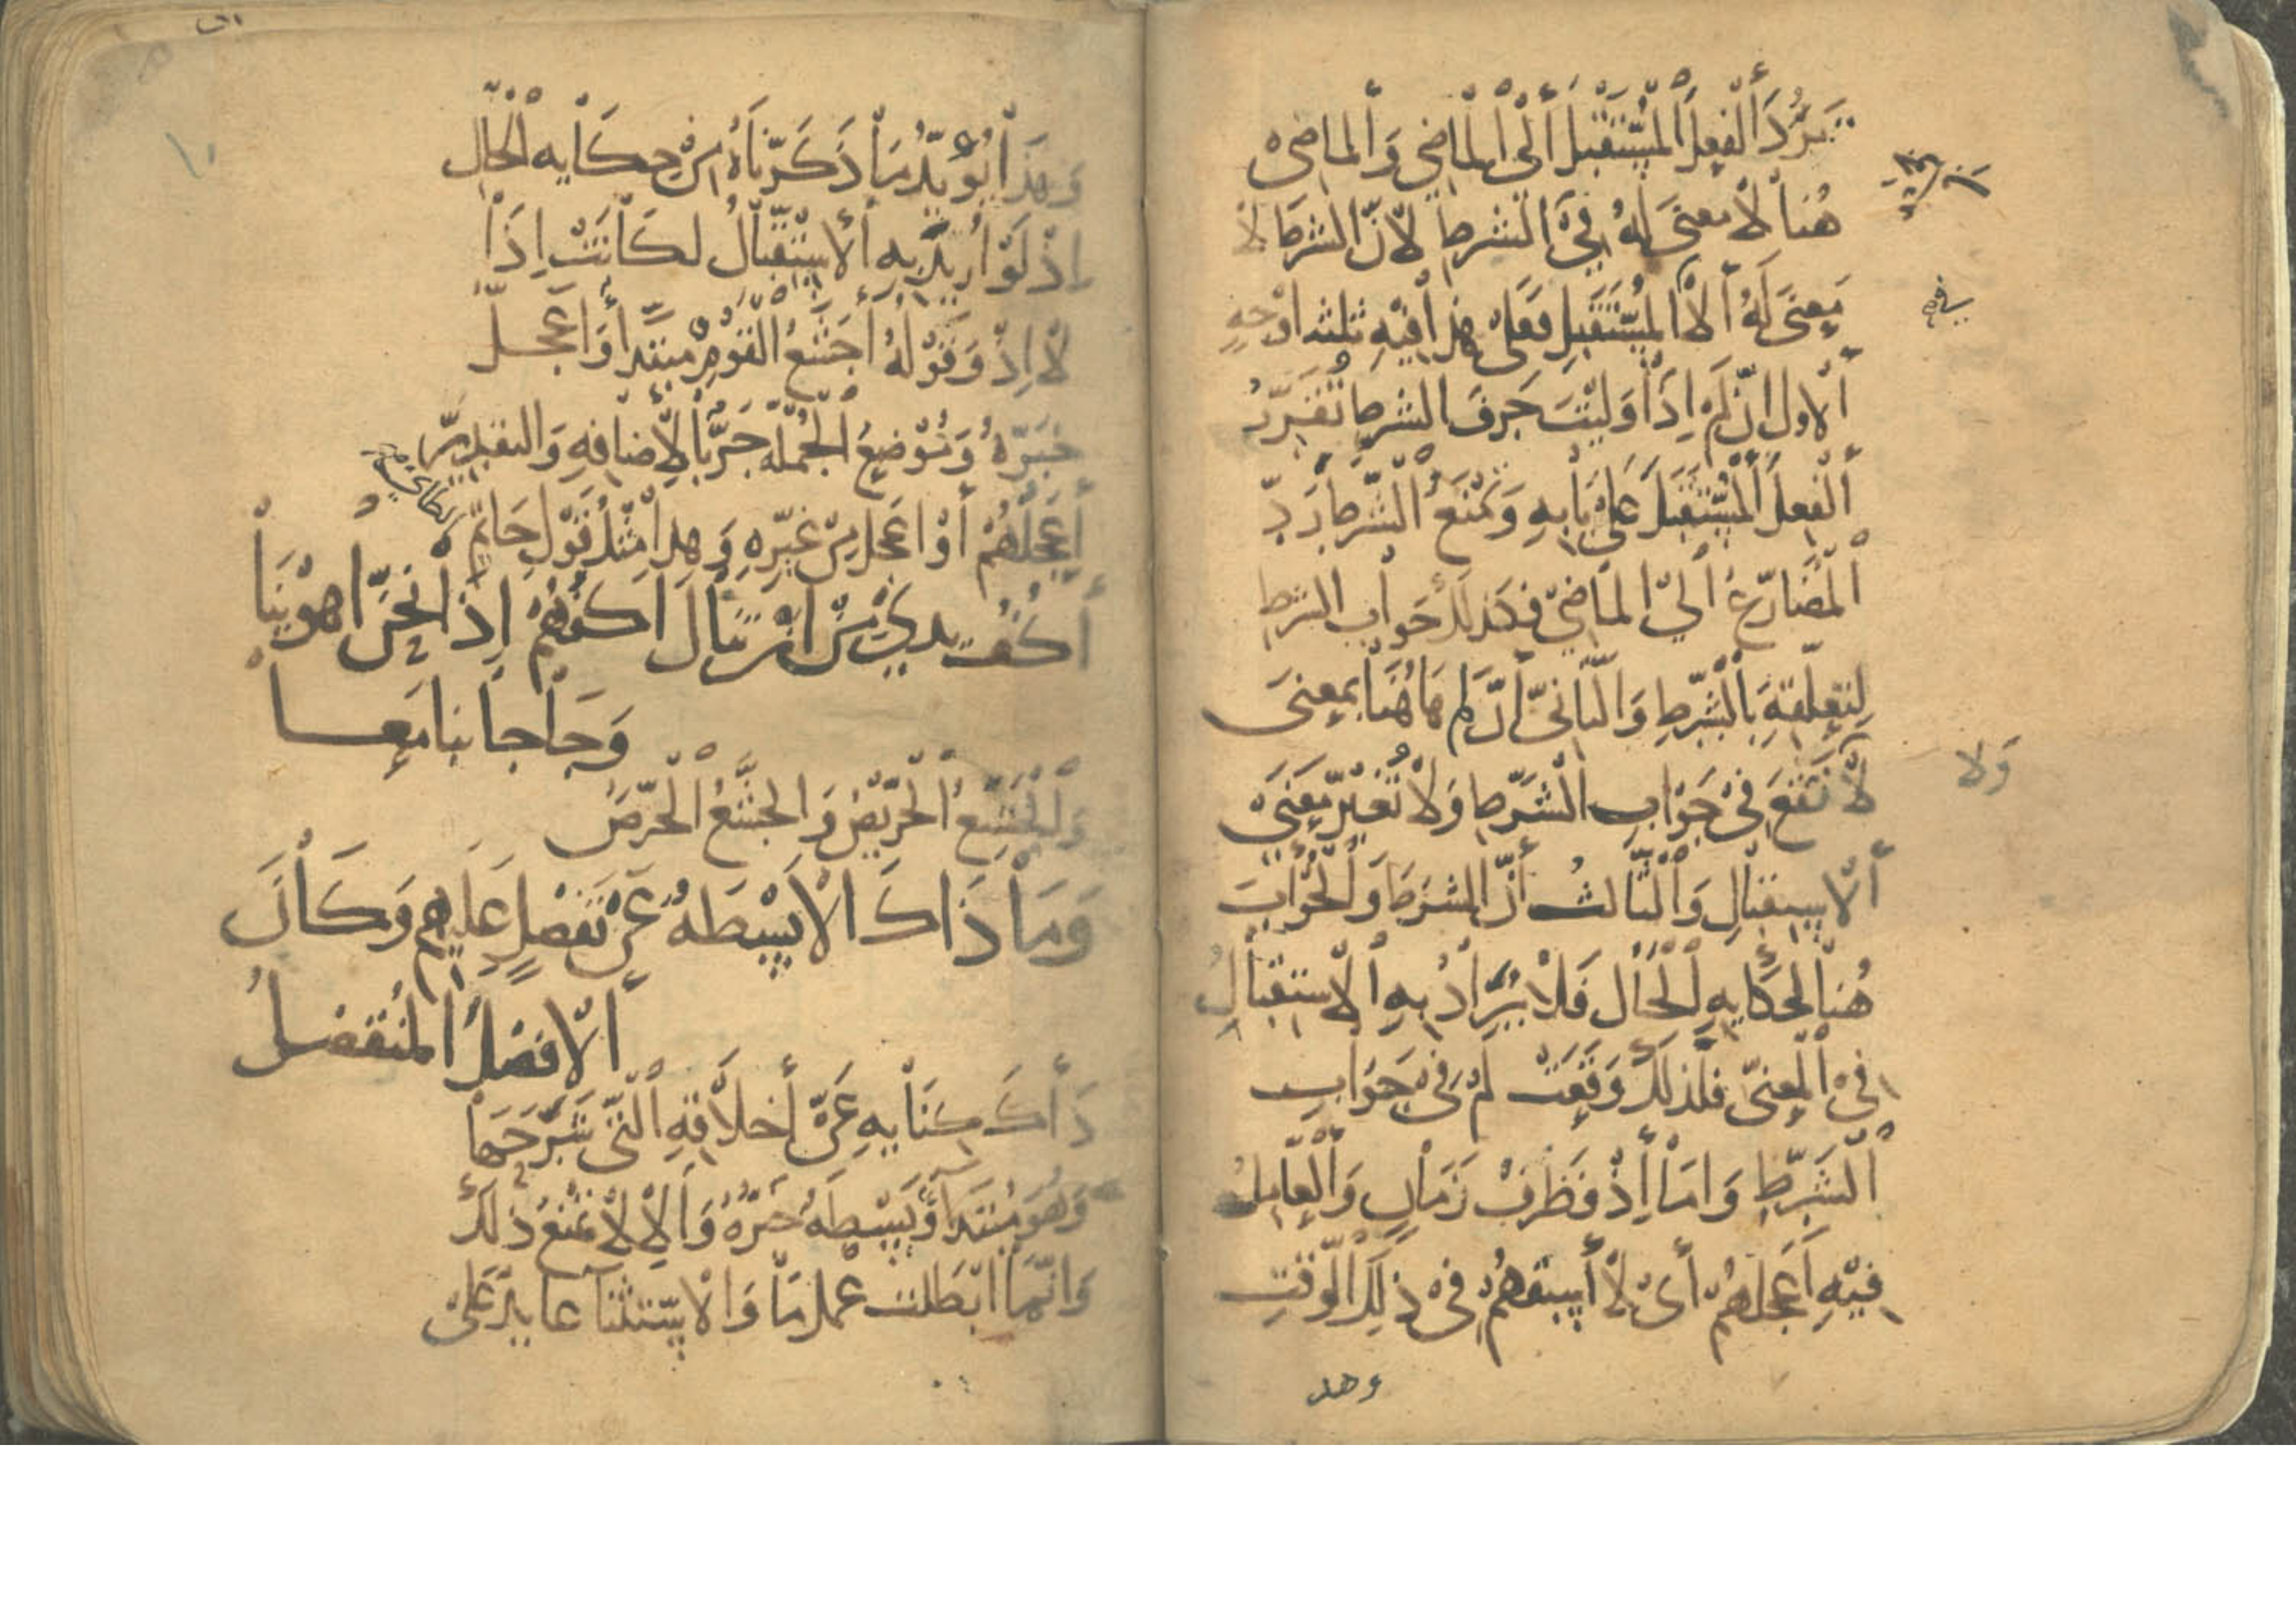 تردّ الفعل المستقبل الى الماضي والماضي
هنا لا معنى له في الشرط لانّ الشرط لا
معنى له الا المستقبل فعلى هذا فيه ثلثه اوجه
الاول ان لم اذا وليت حرف الشرط تقرّ
الفعل المستقبل على بابه وتمنع الشرط ردّ
المضارع الى الماضي فكذلك جواب الشرط
لتعلّقه بالشرط والثاني أنّ لم هاهنا بمعنى
لا تقع في جواب الشرط ولا تغيّر معنى
ولا
الاستقبال والثالث أنّ الشرط والجواب
هنا لحكايه الحال فلا يراد به الاستقبال
في المعنى فلذلك وقعت لم في جواب
الشرط واما إذ فظرف زمان والعامل
فيه أعجلهم أي لا أسبقهم في ذلك الوقت
وهذ
وهذا يؤيّد ما ذكرناه من حكايه الحال
إذ لو اريد به الاستقبال لكانت إذا
لا إذ وقوله أجشع القوم مبتدأ وأعجل
خبره وموضع الجمله جرّ بالإضافه والتقدير
أعجلهم أو اعجل من غيره وهذا مثل قول حاتم
الطائي
أكف يدي من ان تنال اكفهم إذ نحن اهوينا
وحاجاتنا معا
والجشع الحريص والجشع الحرص
وما ذاك الا بسطه عن تفضل عليهم وكان
الافضل المتفضل
ذاك كنايه عن أخلاقه التي شرحها
وهو مبتدا وبسطه خبره والا لا تمنع ذلك
وانما ابطلت عمل ما والاستثنا عايد على